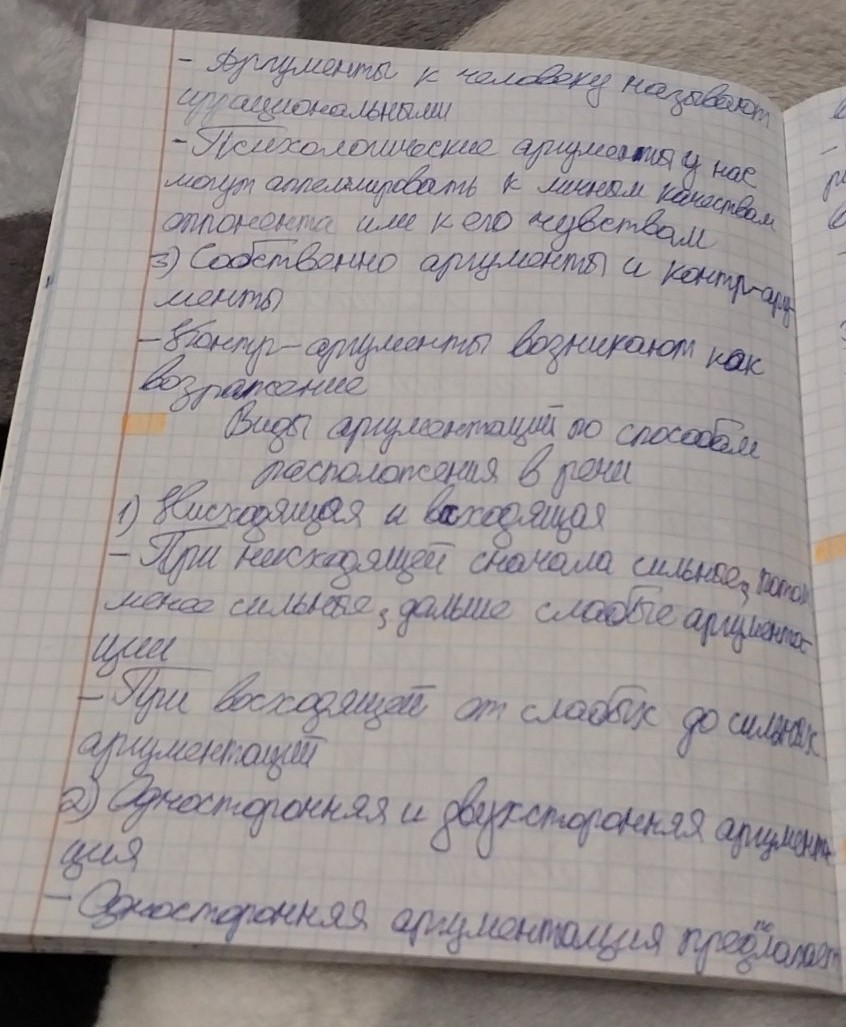 - Аргументы к человеку называют
иррациональными
- Психологические аргументы у нас
могут аппелировать к личном качествам
оппонента или к его чувствам
3) Собственно аргументы и контр-аргу-
менты
- Контр-аргументы возникают как
возражение
Виды аргументаций по способам
расположения в речи
1) Нисходящая и восходящая
- При нисходящей сначала сильное, потом
менее сильные, дальше слабые аргумента-
ции
- При восходящей от слабых до сильных
аргументаций
2) Односторонняя и двухсторонняя аргумента-
ция
- Односторонняя аргументация предполагает